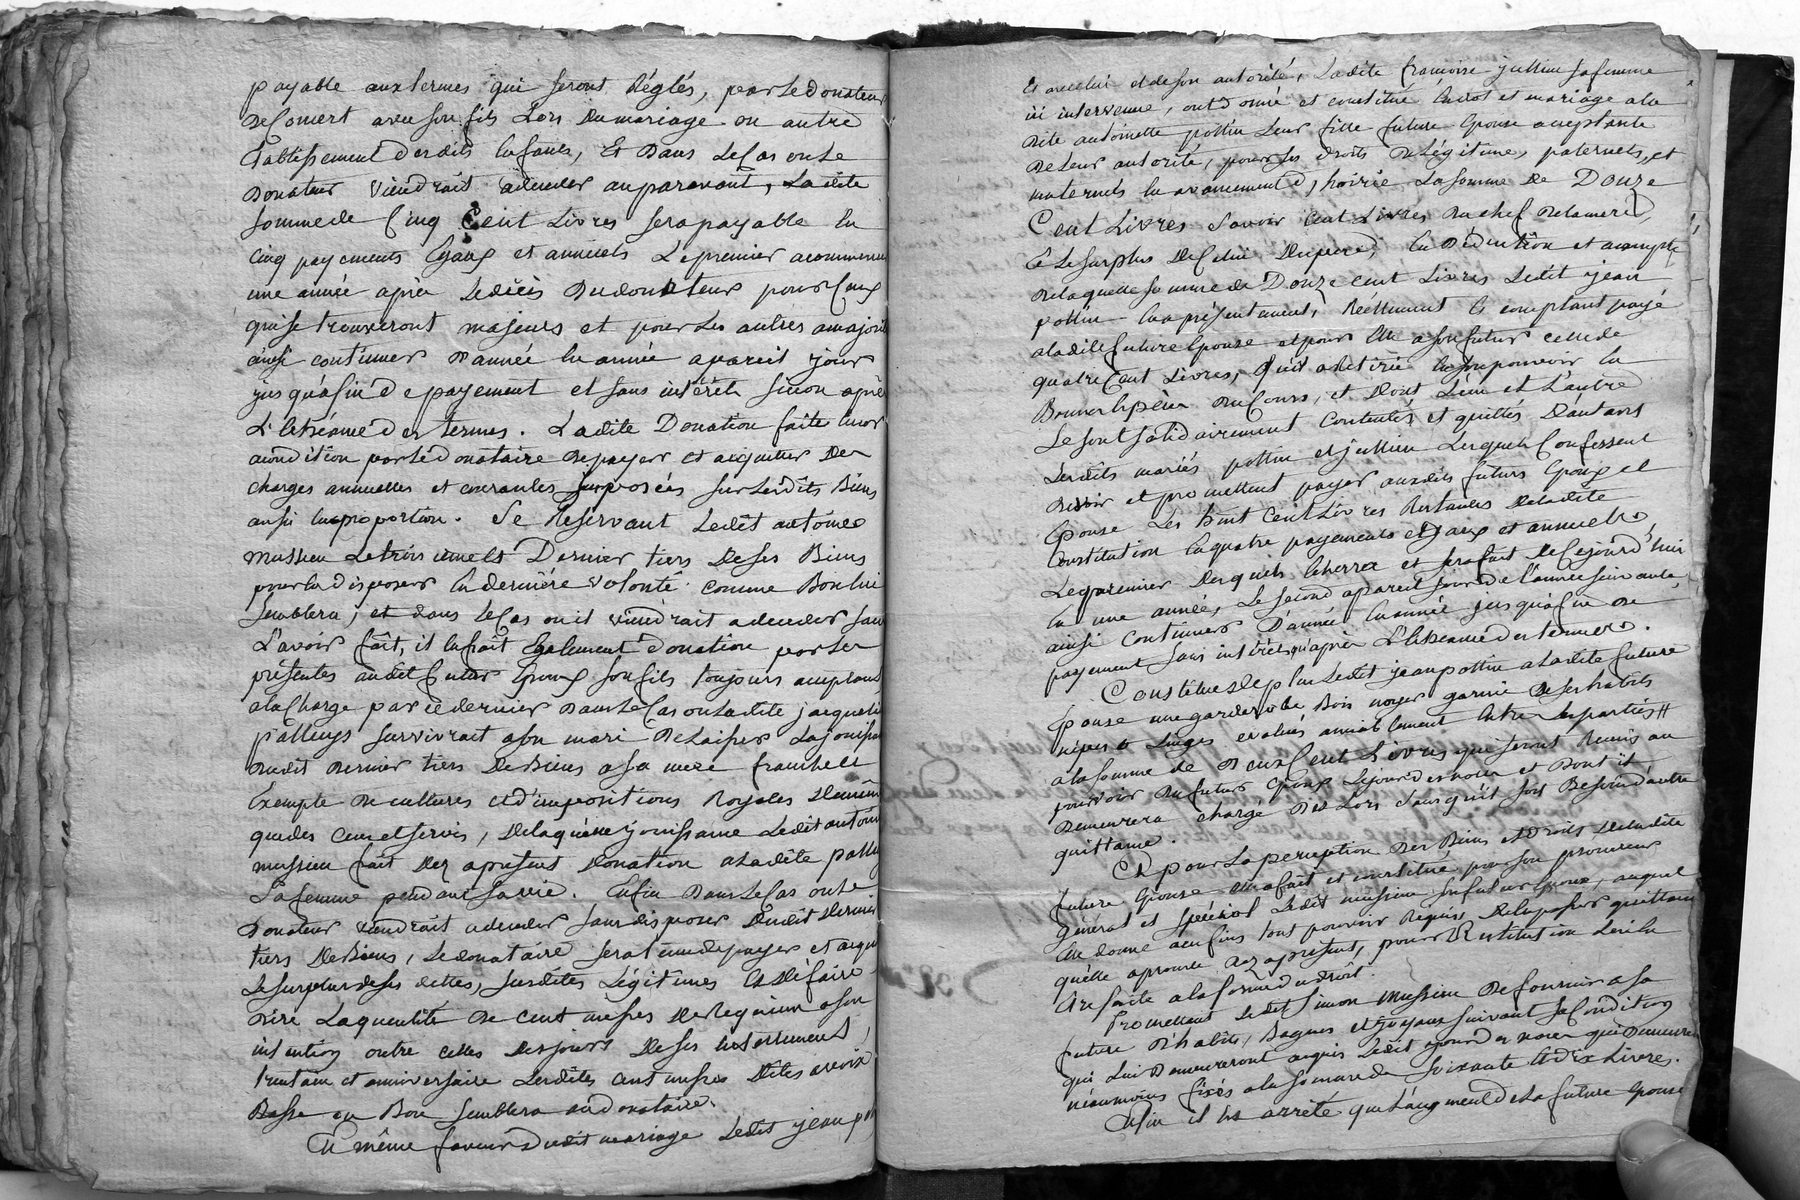 payable aux termes qui seront Réglés, par le donateur
de Concert avec son fils Lors du mariage ou autre
Etablissement desdits Enfants, Et Dans le Cas ou le
Donateur viendrait adeceder auparavant, Ladite
somme de Cinq Cent Livres sera payable En
Cinq payements Egaux et annuels Le premier acommencer
une année après Ledécès Dudonateur pour Ceux
qui se trouveront majeurs et pour les autres amajorité
ainsi continuer D'année En année apareil jour
jusqu'afin de payement et sans intérêts sinon après
L'Echéance des termes. Ladite Donation faite Encor
acondition par le donataire De payer et acquitter Des
charges annuelles et courantes Imposées sur Lesdits Biens
aussi En proportion. Se Reservant Ledit antoine
mussieu Le troisieme Et Dernier tiers Deses Biens
pour En disposer En dernière volonté comme Bon lui
semblera; et dans le Cas ou il viendrait adeceder sans
L'avoir fait, il En fait Egalement donation par les
présentes audit futur Epoux son fils toujours acceptant
ala Charge par ce dernier Dans le Cas ou Ladite jacqueline
palluys survivrait ason mari De Laisser La jouissance
Dudit Dernier tiers De Biens asa mere franche Et
Exempte De cultures et d'impositions Royales De même
que des Cens et servis, De laquelle jouissance Ledit antoine
mussieu fait Dez apresent Donation aladite palluys
sa femme pendant sa vie. Enfin Dans le Cas ou le
Donateur viendrait adeceder sans disposer Dudit Dernier
tiers De Biens, Le donataire sera tenu de payer et acquitter
Le surplus de ses dettes, susdites Légitimes Et Défaire
Dire La quantité De cent messes De Requiem ason
intention outre celles Desjours De ses Enterrement,
trentain et anniversaire Lesdites cent messes Dites avoix
Basse ou Bon semblera audonataire.
En même faveur Dudit mariage Ledit jean
Et avec lui et de son autorité, Ladite françoise jullien sa femme
ici intervenue, ont donné et constitué En dot et mariage ala
Dite antoinette pottin Leur fille future Epouse acceptante
De Leur autorité, pour ses droits De Légitime, paternels, et
maternels En avancement d'hoirie La somme De Douze
Cent Livres savoir cent Livres Du chef De la mere
Et Le surplus De Celui Du pere, En Déduction et acompte
De laquelle somme de Douze cent Livres Ledit jean
pottin En a présentement, Réellement Et comptant payé
aladite future Epouse et pour Elle a son futur celle de
quatre Cent Livres, qu'il a Retirée En son pouvoir En
Bonnes Espèces Du Cours, et Dont L'un et L'autre
Se sont solidairement Contentés et quittés D'autant
Lesdits mariés pottin et jullien Lesquels Confessent
Devoir et promettent payer auxdits futurs Epoux et
Epouse Les huit Cent Livres Restantes De ladite
Constitution En quatre payements Egaux et annuels,
Le premier Desquels Echerra et sera fait De Cejourd'hui
En une année, Le second apareil jour De l'année suivante,
ainsi continuer D'année En année jusqu'afin De
payement sans intérêts qu'après L'Echeance des termes.
Constitue De plus Ledit jean pottin aladite future
Epouse une garderobe Bois noyer garnie De ses habits
nipes Et Linges evalués amiablement Entre Les parties
ala somme de Deux Cent Livres qui seront Remis au
pouvoir Du futur Epoux Le jour des noces et Dont il
Demeurera chargé Des Lors sans qu'il soit Besoin d'autre
quittance.
Et pour La perception Des Biens et droits De ladite
future Epouse Elle a fait et constitué pour son procureur
général et spécial Ledit mussieu son futur Epoux, auquel
Elle donne aces fins tout pouvoir Requis De Passer quittance
qu'elle aprouve dez apresent, pour Restitution Lui En
Etre faite ala forme du droit.
Promettant Ledit Simon mussieu De fournir a sa
future D'habits, Bagues et joyaux suivant sa Condition
qui Lui Demeureront acquis Ledit jour de noces qui Demeurent
néanmoins fixés ala somme de soixante Et dix Livres.
Enfin il Est arrêté que L'augment de La future Epouse